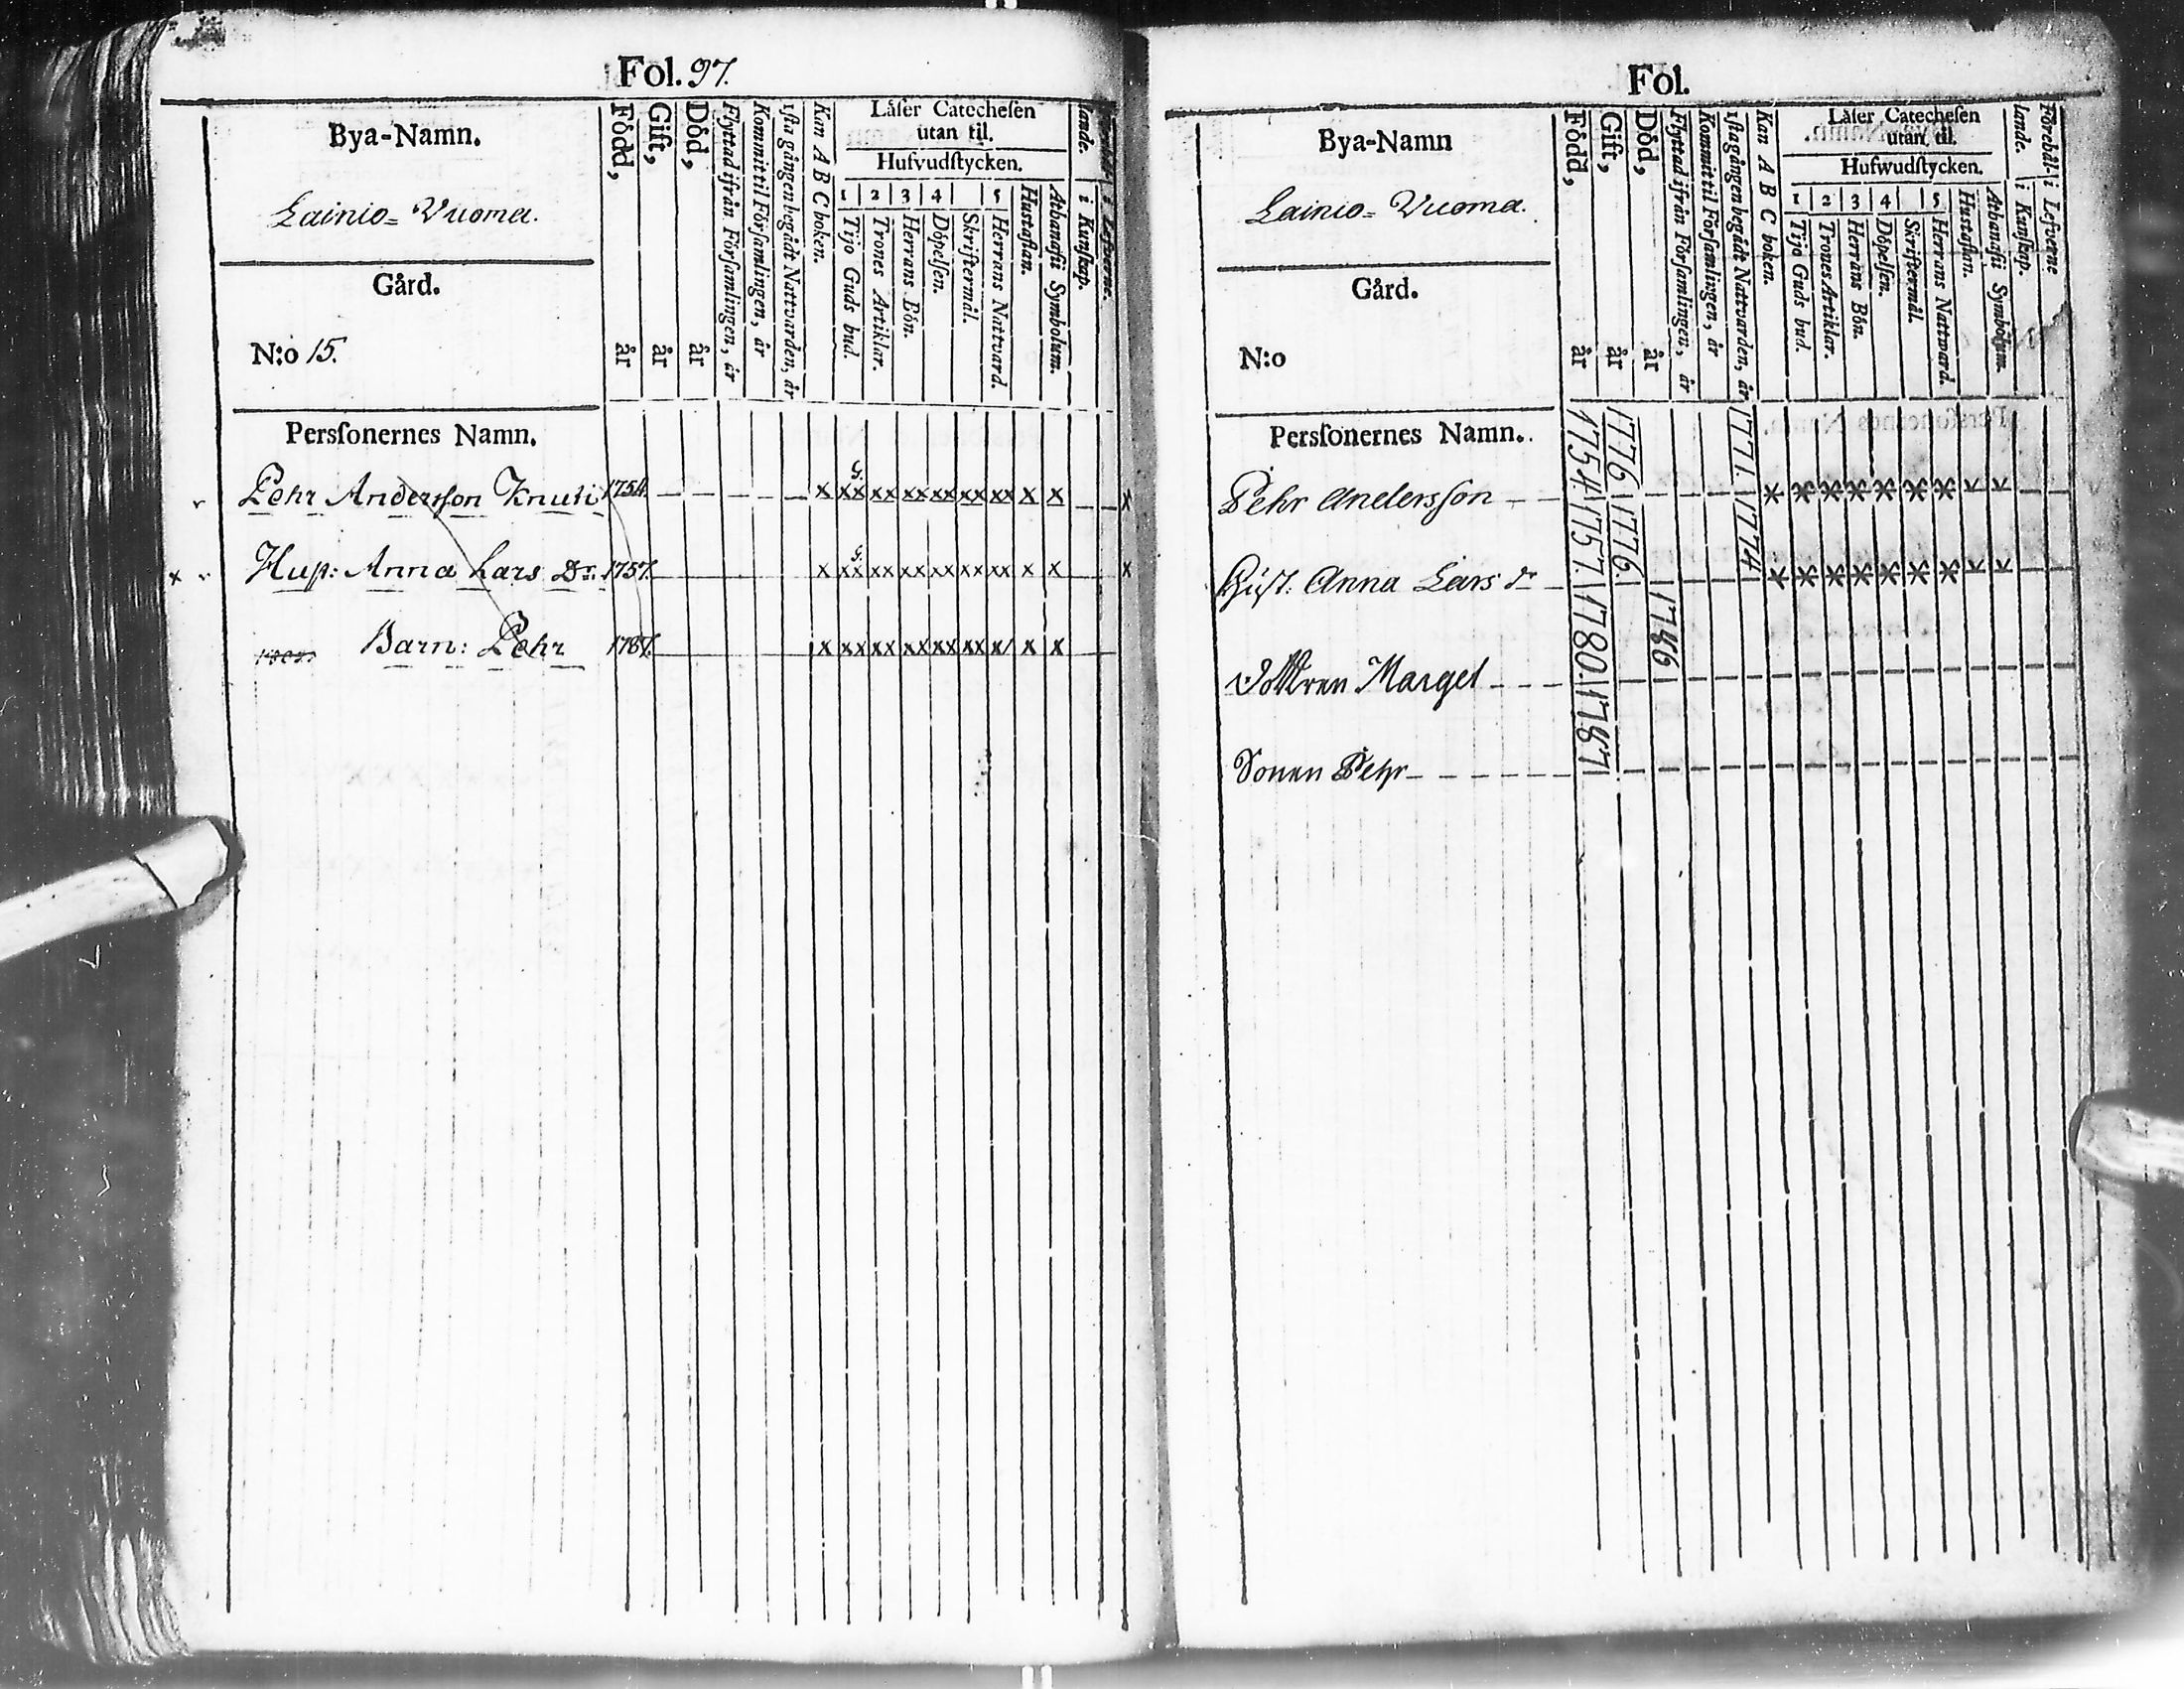 Fol. 97.
Bya-Namn.
Lainio= Vuoma.
Gård.
N:o 15.
Persſonernes Namn.
Född, år
Gift, år
Död, år
Flyttad ifrån Förſamlingen, år
Kommit til Förſamlingen, år
1ſta gången begådt Nattvarden, år
Kan A B C boken.
Låſer Catecheſen
utan til.
Hufvudſtycken.
1 2 3 4 5
Tijo Guds bud.
Trones Artiklar.
Herrans Bön.
Döpelſen.
Skriftermål.
Herrans Nattvard.
Huſtaflan.
Athanaſii Symbolum.
lande.
i Kunſkap.
i Lefverne.
G.
Pehr Andersſon Knuti 1754. x xx xx xx xx xx xx x x x
G.
x Huſ: Anna Lars Dr. 1757. x xx xx xx xx xx xx x x x
Barn: Pehr 1787. x xx xx xx xx xx x/ x x
Fol.
Bya-Namn
Lainio= Vuoma.
Gård.
N:o
Persſonernes Namn.
Född, år
Gift, år
Död, år
Flyttad ifrån Förſamlingen, år
Kommit til Förſamlingen, år
1ſta gången begådt Nattvarden, år
Kan A B C boken.
Låſer Catecheſen
utan til.
Hufwudſtycken.
1 2 3 4 5
Tijo Guds bud.
Trones Artiklar.
Herrans Bön.
Döpelſen.
Skriftermål.
Herrans Nattward.
Huſtaflan.
Athanaſii Symbolum.
Förehål-
lande.
i Kunſkap.
i Lefverne
Pehr Andersſon 1754 1776 1771.
Huſt. Anna Lars dr 1757. 1776. 1774
Dottren Marget 1780. 1786
Sonen Pehr 1787